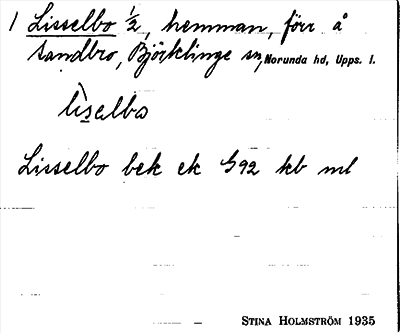 1 Lisselbo 1/2, hemman, förr å
Sandbro, Björklinge sn, Norunda hd, Upps. l.
lìselbo
Lisselbo bek ek G92 kb ml
STINA HOLMSTRÖM 1935